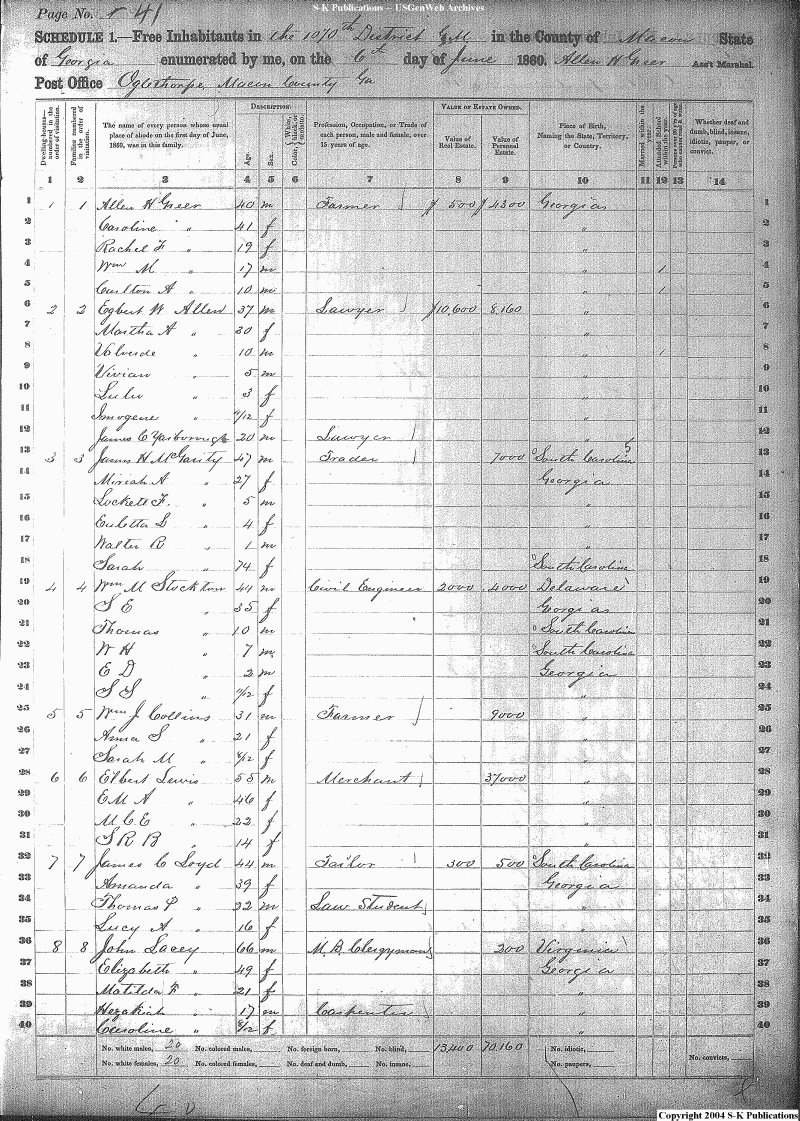 S-K Publications – USGenWeb Archives
Page No. 41
SCHEDULE 1.—Free Inhabitants in the 1070th District G M in the County of Macon State
of Georgia enumerated by me, on the 6th day of June 1860. Allen H Greer Ass't Marshal.
Post Office Oglethorpe, Macon County Ga
Dwelling-houses numbered in the order of visitation. Families numbered in the order of visitation. The name of every person whose usual place of abode on the first day of June, 1860, was in this family. DESCRIPTION. Age. Sex. Color, White, black, or mulatto. Profession, Occupation, or Trade of each person, male and female, over 15 years of age. VALUE OF ESTATE OWNED. Value of Real Estate. Value of Personal Estate. Place of Birth, Naming the State, Territory, or Country. Married within the year. Attended School within the year. Whether deaf and dumb, blind, insane, idiotic, pauper, or convict.
1 2 3 4 5 6 7 8 9 10 11 12 13 14
1 1 1 Allen H Greer 40 m Farmer 500 4300 Georgia 1
2 Caroline " 41 f " 2
3 Rachel F " 19 f " 3
4 Wm M " 17 m " 1 4
5 Carlton A " 10 m " 1 5
6 2 2 Egbert W Allen 37 m Lawyer 10,600 8,160 " 6
7 Martha A " 30 f " 7
8 Valverde " 10 m " 1 8
9 Vivian " 5 m " 9
10 Lulu " 3 f " 10
11 Imogene " /12 f " 11
12 James C Yarborough 20 m Lawyer " 12
13 3 3 James H McGarity 47 m Trader 7000 South Carolina 13
14 Miriah A " 27 f Georgia 14
15 Lockett F. " 5 m " 15
16 Euletta S " 4 f " 16
17 Walter R " 1 m " 17
18 Sarah " 74 f South Carolina 18
19 4 4 Wm M Stockton 44 m Civil Engineer 2000 4000 Delaware 19
20 S E " 35 f Georgia 20
21 Thomas " 10 m South Carolina 21
22 W H " 7 m South Carolina 22
23 E D " 2 m Georgia 23
24 S S " /12 f " 24
25 5 5 Wm J Collins 31 m Farmer 9000 " 25
26 Anna S " 21 f " 26
27 Sarah M " /12 f " 27
28 6 6 Elbert Lewis 55 m Merchant 37000 " 28
29 E M A " 46 f " 29
30 M C E " 22 f " 30
31 S R B " 14 f " 31
32 7 7 James C Loyd 44 m Tailor 300 500 South Carolina 32
33 Amanda " 39 f Georgia 33
34 Thomas P " 22 m Law Student " 34
35 Lucy A " 16 f " 35
36 8 8 John Lacey 66 m M. B. Clergyman 200 Virginia 36
37 Elizabeth " 49 f Georgia 37
38 Matilda F " 21 f " 38
39 Hezakiah " 17 m Carpenter " 39
40 Caroline " /12 f " 40
No. white males, 20 No. colored males, No. foreign born, No. blind, 13,400 70,160 No. idiotic,
No. white females, 20 No. colored females, No. deaf and dumb, No. insane, No. paupers, No. convicts,
Copyright 2004 S-K Publications